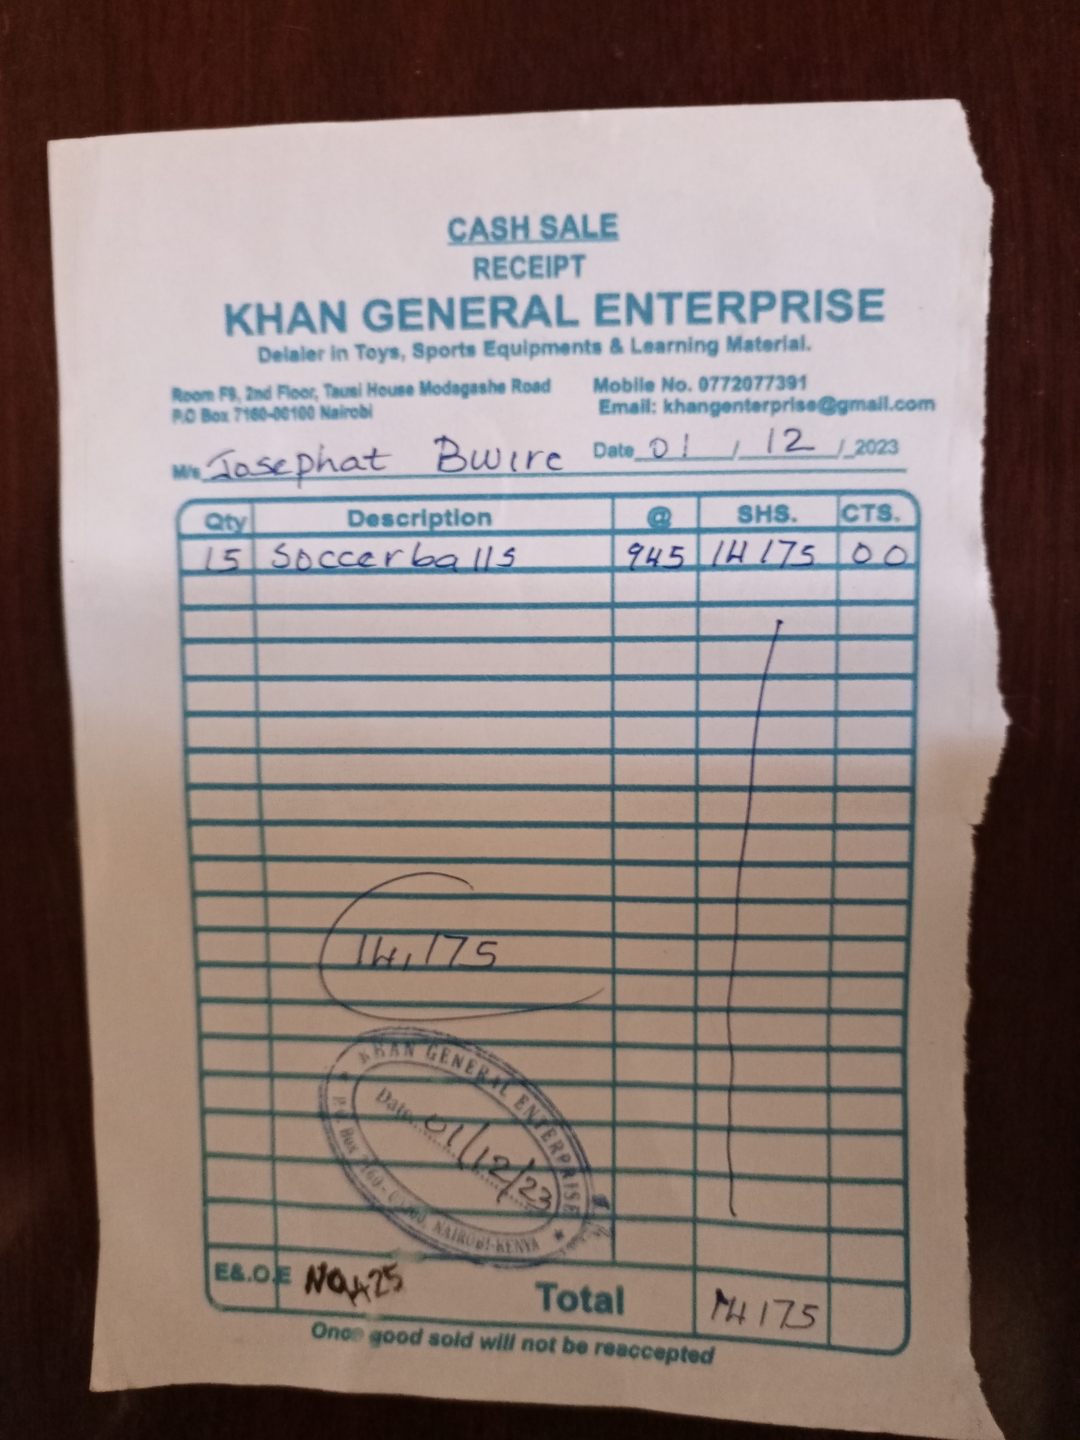 CASH SALE
RECEIPT
KHAN GENERAL ENTERPRISE
Delaler in Toys, Sports Equipments & Learning Material.
Room F9, 2nd Floor, Tausi House Modagashe Road
P.O Box 7160-00100 Nairobi
Mobile No. 0772077391
Email: khangenterprise@gmail.com
M/s Josephat Bwire Date 01 / 12 / 2023
Qty Description @ SHS. CTS.
15 Soccerballs 945 14175 00
14,175
KHAN GENERAL ENTERPRISE
Date 01/12/23
P.O. Box 7160 - 00100, NAIROBI-KENYA
E&.O.E NO 425 Total 14175
Once good sold will not be reaccepted